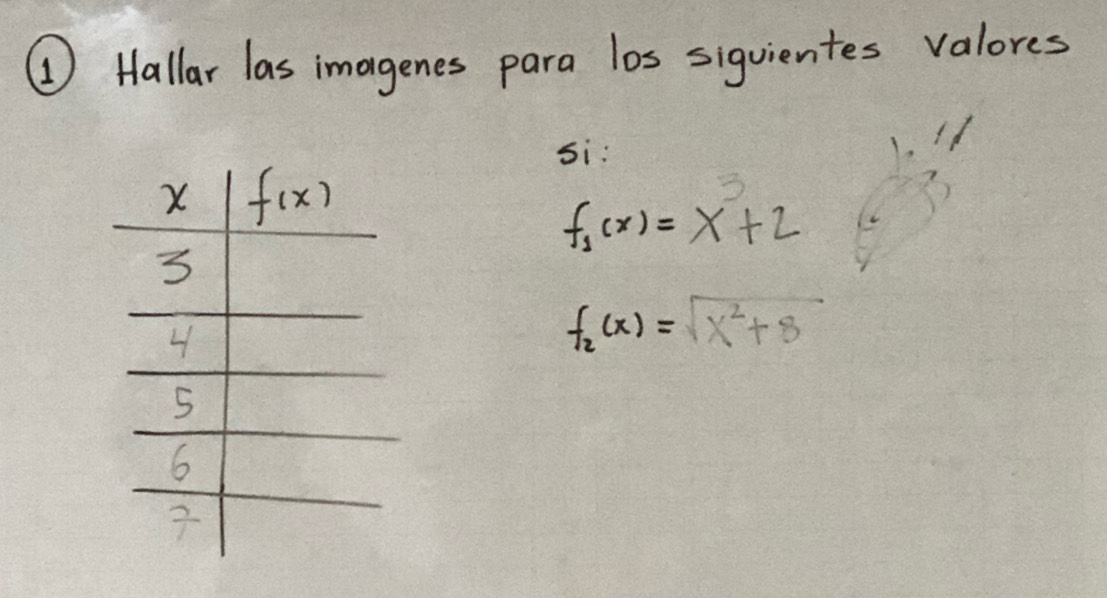 ① Hallar las imagenes para los siguientes valores
x | f(x)
3
4
5
6
7
si:
f₁(x) = x³+2
f₂(x) = √(x²+8)